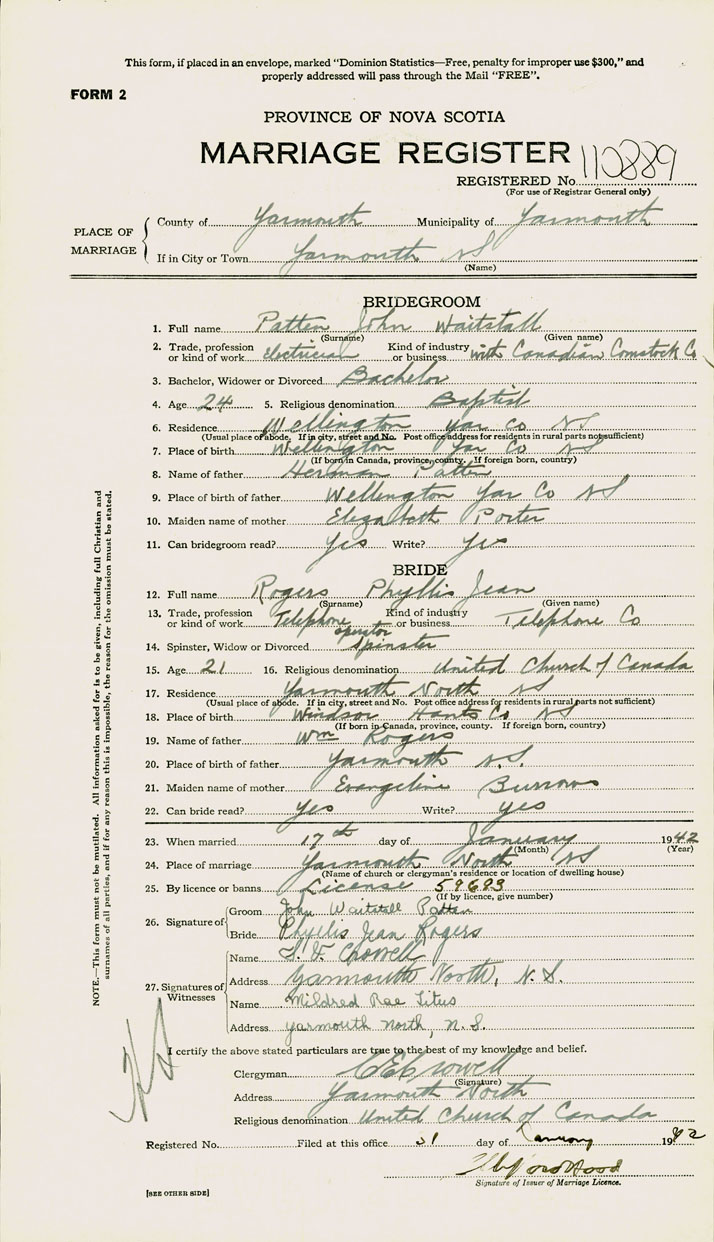 This form, if placed in an envelope, marked "Dominion Statistics—Free, penalty for improper use $300," and
properly addressed will pass through the Mail "FREE".
FORM 2
PROVINCE OF NOVA SCOTIA
MARRIAGE REGISTER 110889
REGISTERED No.
(For use of Registrar General only)
PLACE OF MARRIAGE
County of Yarmouth Municipality of Yarmouth
If in City or Town Yarmouth NS
(Name)
BRIDEGROOM
1. Full name Patten John Waitstall
(Surname) (Given name)
2. Trade, profession or kind of work electrician Kind of industry or business with Canadian Comstock Co
3. Bachelor, Widower or Divorced Bachelor
4. Age 24 5. Religious denomination Baptist
6. Residence Wellington Yar Co NS
(Usual place of abode. If in city, street and No. Post office address for residents in rural parts not sufficient)
7. Place of birth Wellington Yar Co NS
(If born in Canada, province, county. If foreign born, country)
8. Name of father Herman Patten
9. Place of birth of father Wellington Yar Co NS
10. Maiden name of mother Elizabeth Porter
11. Can bridegroom read? Yes Write? Yes
BRIDE
12. Full name Rogers Phyllis Jean
(Surname) (Given name)
13. Trade, profession or kind of work Telephone operator Kind of industry or business Telephone Co
14. Spinster, Widow or Divorced Spinster
15. Age 21 16. Religious denomination United Church of Canada
17. Residence Yarmouth North NS
(Usual place of abode. If in city, street and No. Post office address for residents in rural parts not sufficient)
18. Place of birth Windsor Hants Co NS
(If born in Canada, province, county. If foreign born, country)
19. Name of father Wm Rogers
20. Place of birth of father Yarmouth N.S.
21. Maiden name of mother Evangeline Burrows
22. Can bride read? Yes Write? Yes
23. When married 17th day of January 1942
(Month) (Year)
24. Place of marriage Yarmouth North NS
(Name of church or clergyman's residence or location of dwelling house)
25. By licence or banns License 59693
(If by licence, give number)
26. Signature of
Groom John Waitstall Patten
Bride Phyllis Jean Rogers
27. Signatures of Witnesses
Name Crowell
Address Yarmouth North, N.S.
Name Mildred Rae Titus
Address Yarmouth North, N.S.
I certify the above stated particulars are true to the best of my knowledge and belief.
Clergyman Crowell
(Signature)
Address Yarmouth North
Religious denomination United Church of Canada
Registered No. Filed at this office 31 day of January 1942
Signature of Issuer of Marriage Licence.
[SEE OTHER SIDE]
NOTE.—This form must not be mutilated. All information asked for is to be given, including full Christian and
surnames of all parties, and if for any reason this is impossible, the reason for the omission must be stated.